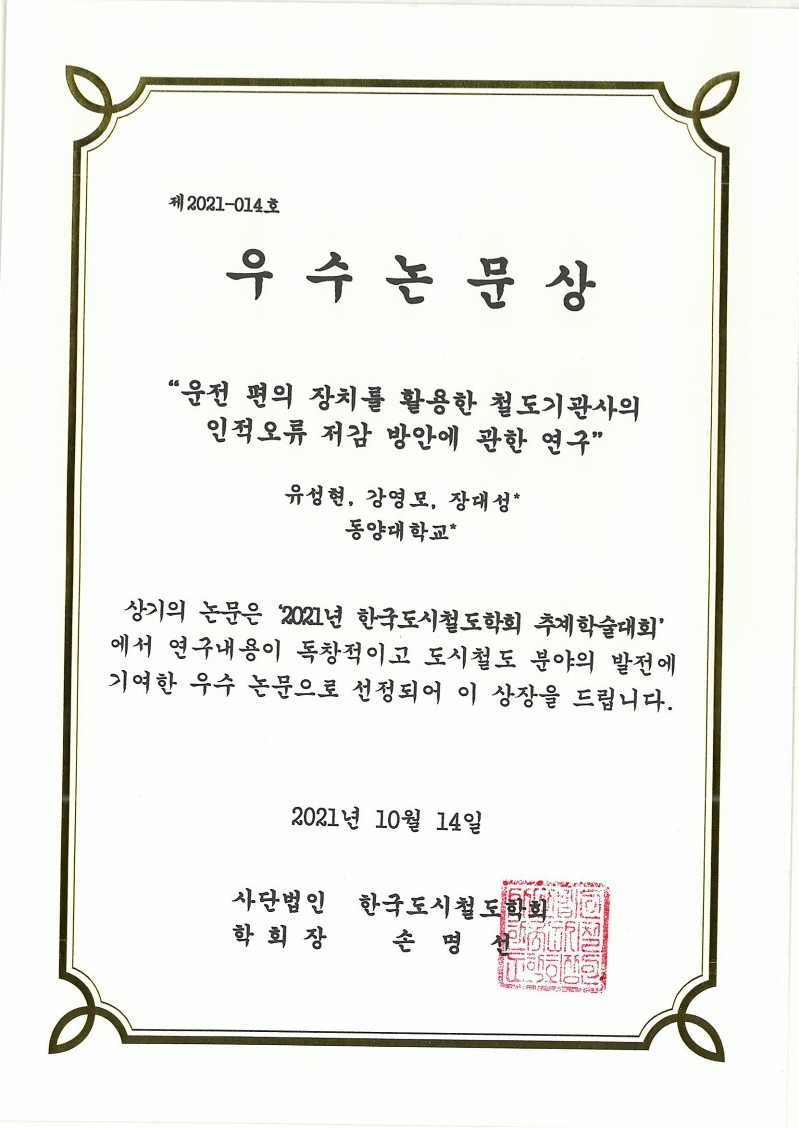 제2021-014호
우 수 논 문 상
“운전 편의 장치를 활용한 철도기관사의
인적오류 저감 방안에 관한 연구”
유성현, 강영모, 장대성*
동양대학교*
상기의 논문은 '2021년 한국도시철도학회 추계학술대회'
에서 연구내용이 독창적이고 도시철도 분야의 발전에
기여한 우수 논문으로 선정되어 이 상장을 드립니다.
2021년 10월 14일
사단법인 한국도시철도학회
학 회 장 손 명 선